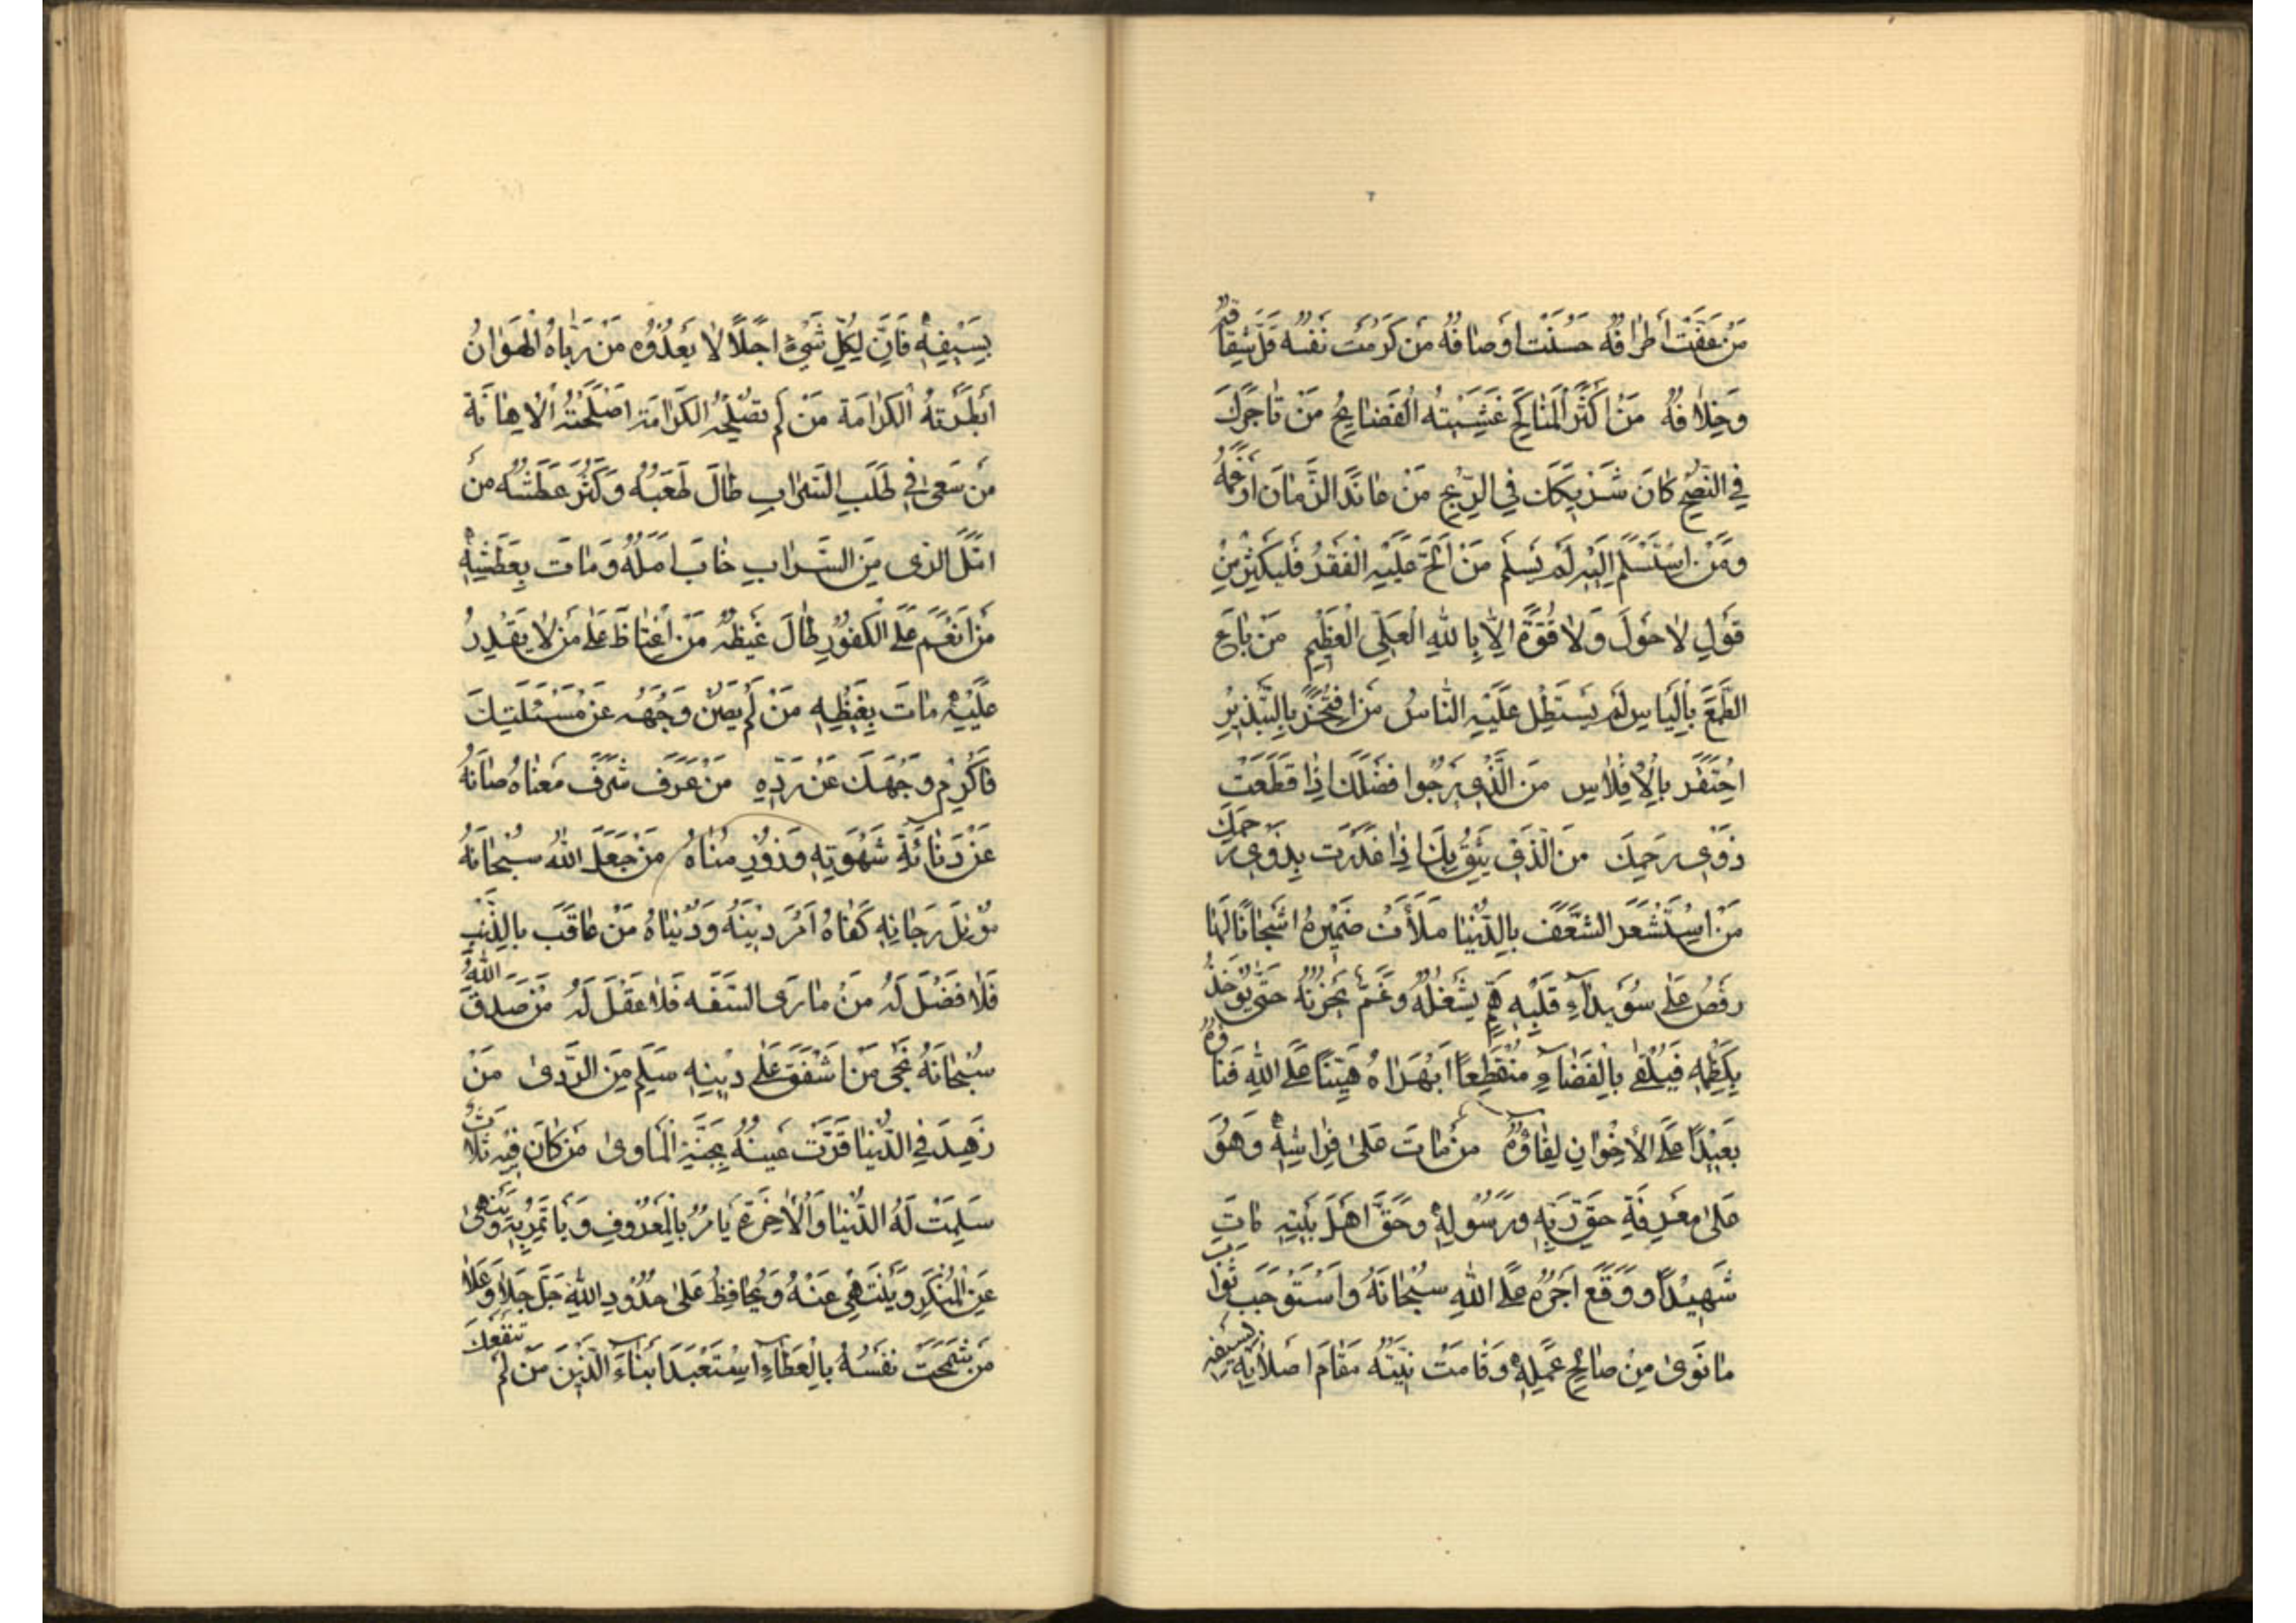 مَنْ عَفَّتْ أَطْرَافُهُ حَسُنَتْ أَوْصَافُهُ مَنْ كَرُمَتْ نَفْسُهُ قَلَّ شِقَاقُهُ
وَخِلَافُهُ مَنْ أَكْثَرَ الْمَنَاكِحَ غَشِيَتْهُ الْفَضَائِحُ مَنْ تَاجَرَكَ
فِي النُّصْحِ كَانَ شَرِيكَكَ فِي الرِّبْحِ مَنْ عَانَدَ الزَّمَانَ أَرْغَمَهُ
وَمَنِ اسْتَسْلَمَ إِلَيْهِ لَمْ يَسْلَمْ مَنْ أَلَحَّ عَلَيْهِ الْفَقْرُ فَلْيُكْثِرْ مِنْ
قَوْلِ لَا حَوْلَ وَلَا قُوَّةَ إِلَّا بِاللّٰهِ الْعَلِيِّ الْعَظِيمِ مَنْ بَاعَ
الطَّمَعَ بِالْيَأْسِ لَمْ يَسْتَطِلْ عَلَيْهِ النَّاسُ مَنِ افْتَخَرَ بِالتَّبْذِيرِ
احْتُقِرَ بِالْإِفْلَاسِ مَنِ الَّذِي يَرْجُوا فَضْلَكَ إِذَا قَطَعْتَ
ذَوِي رَحِمِكَ مَنِ الَّذِي يَثِقُ بِكَ إِذَا غَدَرْتَ بِذَوِي رَحِمِكَ
مَنِ اسْتَشْعَرَ الشَّعَفَ بِالدُّنْيَا مَلَأَتْ ضَمِيرَهُ أَشْجَانًا لَهَا
رَقْصٌ عَلَى سُوَيْدَاءِ قَلْبِهِ هَمٌّ يَشْغَلُهُ وَغَمٌّ يَحْزُنُهُ حَتَّى يُؤْخَذَ
بِكَظْمِهِ فَيُلْقَى بِالْفَضَاءِ مُنْقَطِعًا أَبْهَرَاهُ هَيِّنًا عَلَى اللّٰهِ فَنَاؤُهُ
بَعِيدًا عَلَى الْإِخْوَانِ لِقَاؤُهُ مَنْ مَاتَ عَلَى فِرَاشِهِ وَهُوَ
عَلَى مَعْرِفَةِ حَقِّ رَبِّهِ وَرَسُولِهِ وَحَقِّ أَهْلِ بَيْتِهِ مَاتَ
شَهِيدًا وَوَقَعَ أَجْرُهُ عَلَى اللّٰهِ سُبْحَانَهُ وَاسْتَوْجَبَ ثَوَابَ
مَا نَوَى مِنْ صَالِحِ عَمَلِهِ وَقَامَتْ نِيَّتُهُ مَقَامَ إِصْلَاتِهِ بِسَيْفِهِ
بِسَيْفِهِ فَإِنَّ لِكُلِّ شَيْءٍ أَجَلًا لَا يَعْدُوهُ مَنْ رَبَّاهُ الْهَوَانُ
أَبْطَرَتْهُ الْكَرَامَةُ مَنْ لَمْ تُصْلِحْهُ الْكَرَامَةُ أَصْلَحَتْهُ الْإِهَانَةُ
مَنْ سَعَى فِي طَلَبِ السَّرَابِ طَالَ تَعَبُهُ وَكَثُرَ عَطَشُهُ مَنْ
أَمَّلَ الرَّيَّ مِنَ السَّرَابِ خَابَ أَمَلُهُ وَمَاتَ بِعَطَشِهِ
مَنْ أَنْعَمَ عَلَى الْكَفُورِ طَالَ غَيْظُهُ مَنِ اغْتَاظَ عَلَى مَنْ لَا يَقْدِرُ
عَلَيْهِ مَاتَ بِغَيْظِهِ مَنْ لَمْ يَصُنْ وَجْهَهُ عَنْ مَسْئَلَتِكَ
فَأَكْرِمْ وَجْهَكَ عَنْ رَدِّهِ مَنْ عَرَفَ شَرَفَ مَعْنَاهُ صَانَهُ
عَنْ دَنَائَةِ شَهْوَتِهِ وَزُورِ مُنَاهُ مَنْ جَعَلَ اللّٰهَ سُبْحَانَهُ
مَوْئِلَ رَجَائِهِ كَفَاهُ أَمْرَ دِينِهِ وَدُنْيَاهُ مَنْ عَاقَبَ بِالذَّنْبِ
فَلَا فَضْلَ لَهُ مَنْ مَارَى السَّفَهَ فَلَا عَقْلَ لَهُ مَنْ صَدَقَ اللّٰهَ
سُبْحَانَهُ نَجَى مَنْ أَشْفَقَ عَلَى دِينِهِ سَلِمَ مِنَ الرَّدَى مَنْ
زَهِدَ فِي الدُّنْيَا قَرَّتْ عَيْنُهُ بِجَنَّةِ الْمَأْوَى مَنْ كَانَ فِيهِ ثَلَاثٌ
سَلِمَتْ لَهُ الدُّنْيَا وَالْآخِرَةُ يَأْمُرُ بِالْمَعْرُوفِ وَيَأْتَمِرُ بِهِ وَيَنْهَى
عَنِ الْمُنْكَرِ وَيَنْتَهِي عَنْهُ وَيُحَافِظُ عَلَى حُدُودِ اللّٰهِ جَلَّ وَعَلَا
مَنْ سَمَحَتْ نَفْسُهُ بِالْعَطَاءِ اسْتَعْبَدَ أَبْنَاءَ الدُّنْيَا مَنْ لَمْ تَنْفَعْكَ